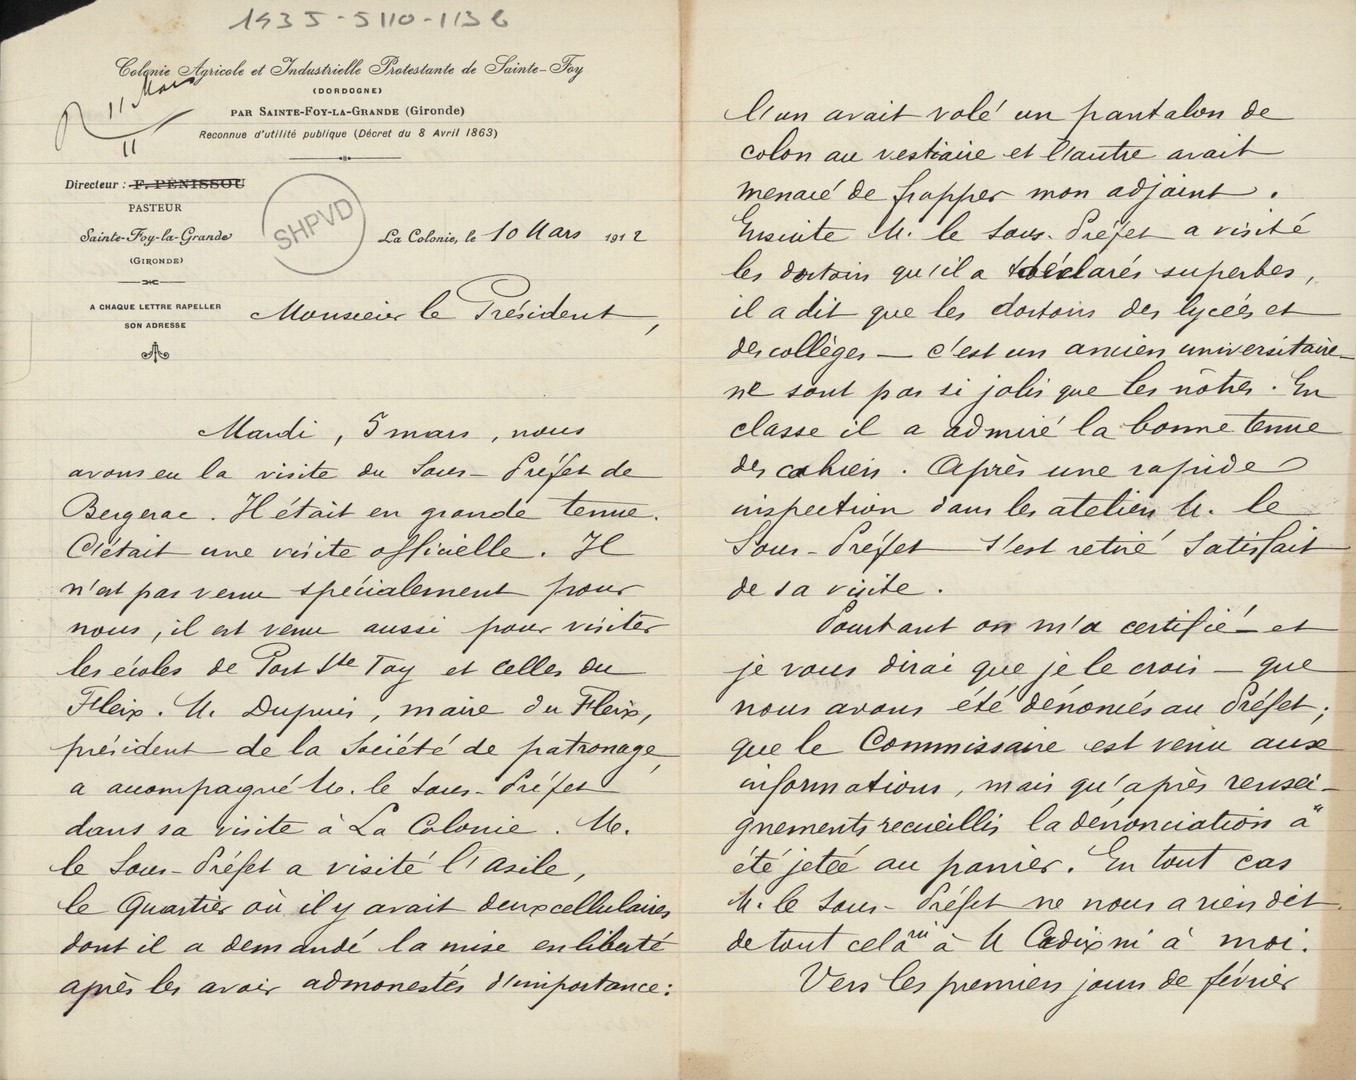 1935-5110-1138
Colonie Agricole et Industrielle Protestante de Sainte-Foy
(DORDOGNE)
PAR SAINTE-FOY-LA-GRANDE (Gironde)
Reconnue d'utilité publique (Décret du 8 Avril 1863)
R 11 Mars
11
Directeur : F. PÉNISSOU
PASTEUR
Sainte-Foy-la-Grande
(GIRONDE)
A CHAQUE LETTRE RAPELLER
SON ADRESSE
SHPVD
La Colonie, le 10 Mars 1912
Monsieur le Président,
Mardi, 5 mars, nous
avons eu la visite du Sous-Préfet de
Bergerac. Il était en grande tenue.
C'était une visite officielle. Il
n'est pas venu spécialement pour
nous, il est venu aussi pour visiter
les écoles de Port Ste Foy et celles du
Fleix. M. Dupuis, maire du Fleix,
président de la Société de patronage,
a accompagné M. le Sous-Préfet
dans sa visite à La Colonie. M.
le Sous-Préfet a visité l'asile,
le Quartier où il y avait deux cellulaires
dont il a demandé la mise en liberté
après les avoir admonestés d'importance:
l'un avait volé un pantalon de
colon au vestiaire et l'autre avait
menacé de frapper mon adjoint.
Ensuite M. le Sous-Préfet a visité
les dortoirs qu'il a déclarés superbes,
il a dit que les dortoirs des lycées et
des collèges — c'est un ancien universitaire —
ne sont pas si jolis que les nôtres. En
classe il a admiré la bonne tenue
des cahiers. Après une rapide
inspection dans les ateliers M. le
Sous-Préfet s'est retiré satisfait
de sa visite.
Pourtant on m'a certifié — et
je vous dirai que je le crois — que
nous avons été dénoncés au Préfet;
que le Commissaire est venu aux
informations, mais qu'après rensei-
gnements recueillis la dénonciation a
été jetée au panier. En tout cas
M. le Sous-Préfet ne nous a rien dit
de tout cela ni à M Cadix ni à moi.
Vers les premiers jours de février